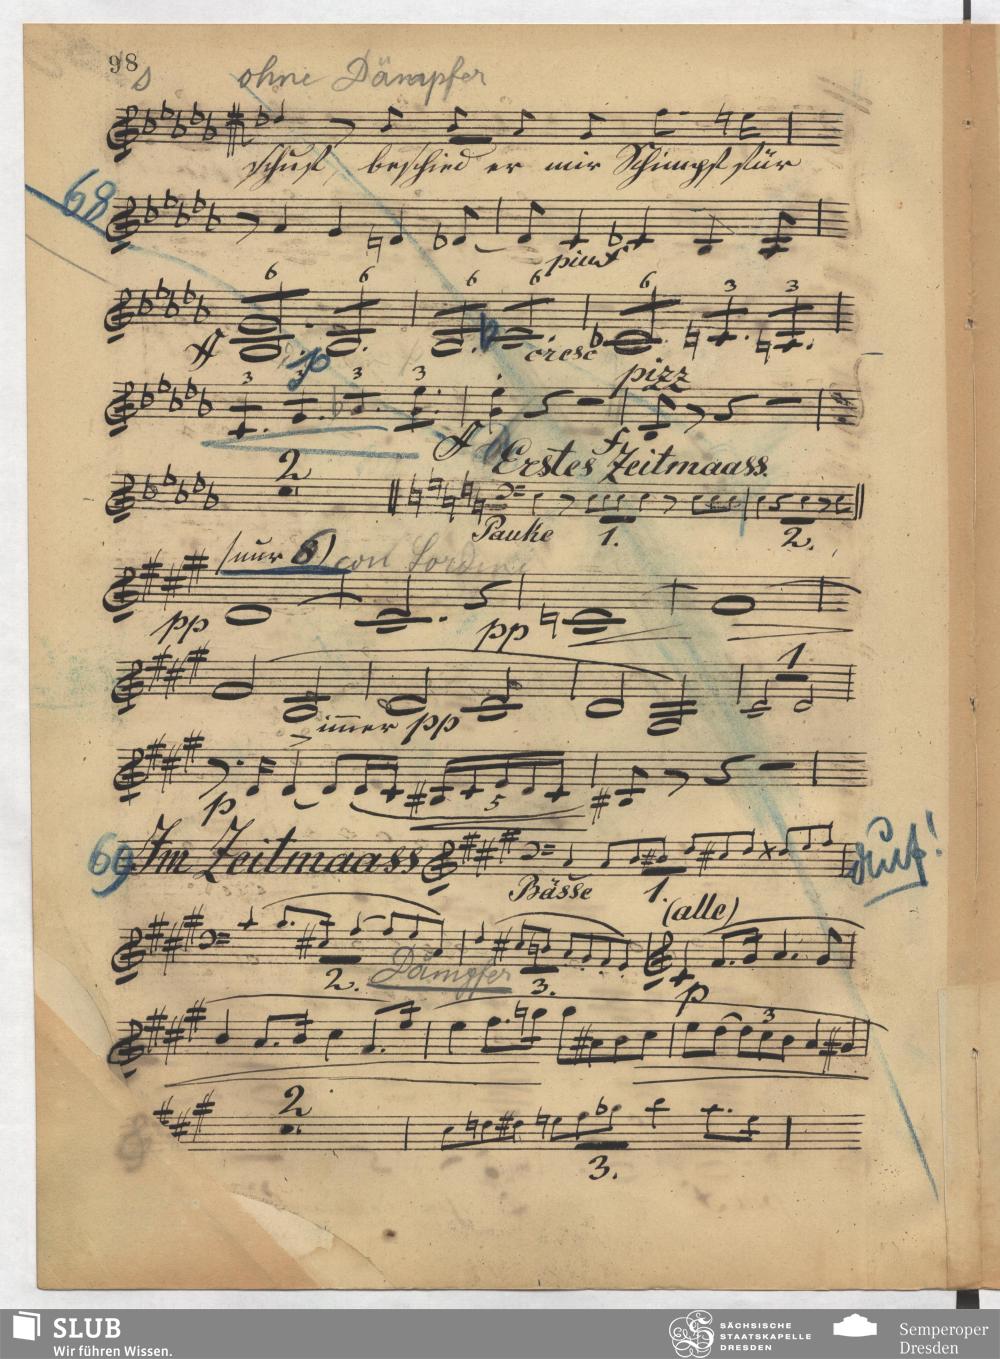 98
ohne Dämpfer
schuf beschied er mir Schimpf für
68
più f
6 6 6 6 6 3 3
ff p cresc
3 3 3 3 pizz
ff f
2 Erstes Zeitmaass.
Pauke 1. 2.
(nur 6) con Sordini
pp pp
1
immer pp
p 5
69 Im Zeitmaass
Bässe 1.
(alle)
2. Dämpfer 3. p
3
2
3.
SLUB
Wir führen Wissen.
SÄCHSISCHE
STAATSKAPELLE
DRESDEN
Semperoper
Dresden